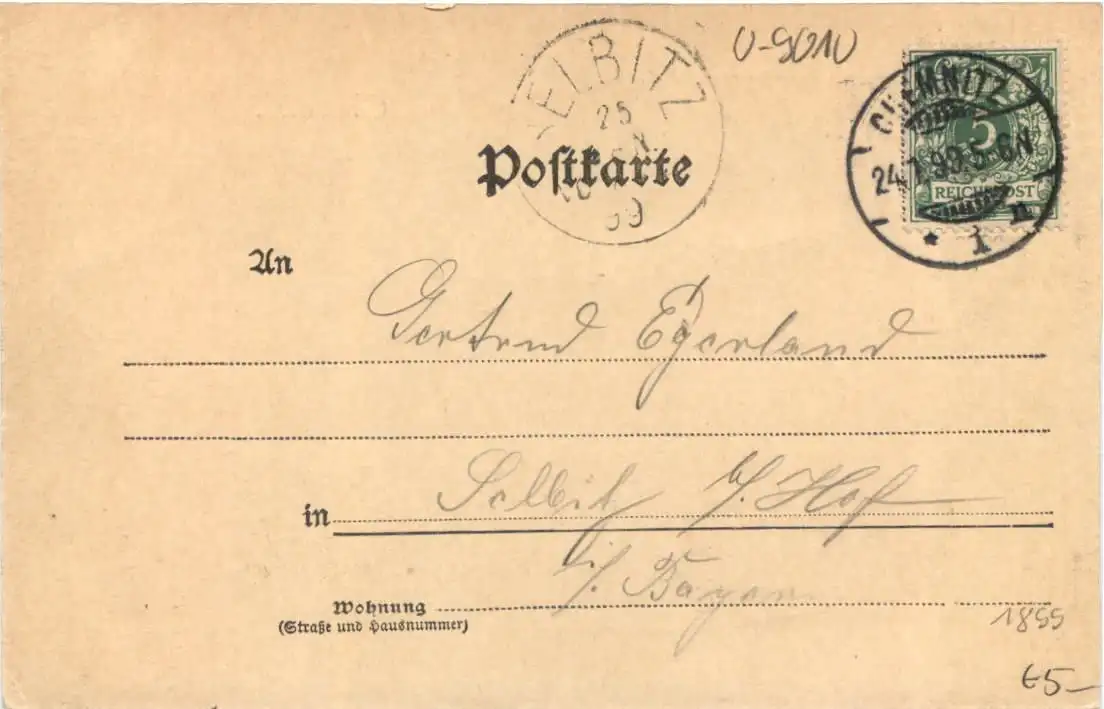 0-9010
SELBITZ
25
99
CHEMNITZ
24.7.99.5-6N
* 1 n
5
REICHSPOST
Postkarte
An
Gertrud Egerland
in Selbitz b/ Hof
i/ Bayern
Wohnung
(Straße und Hausnummer)
1899
€5-